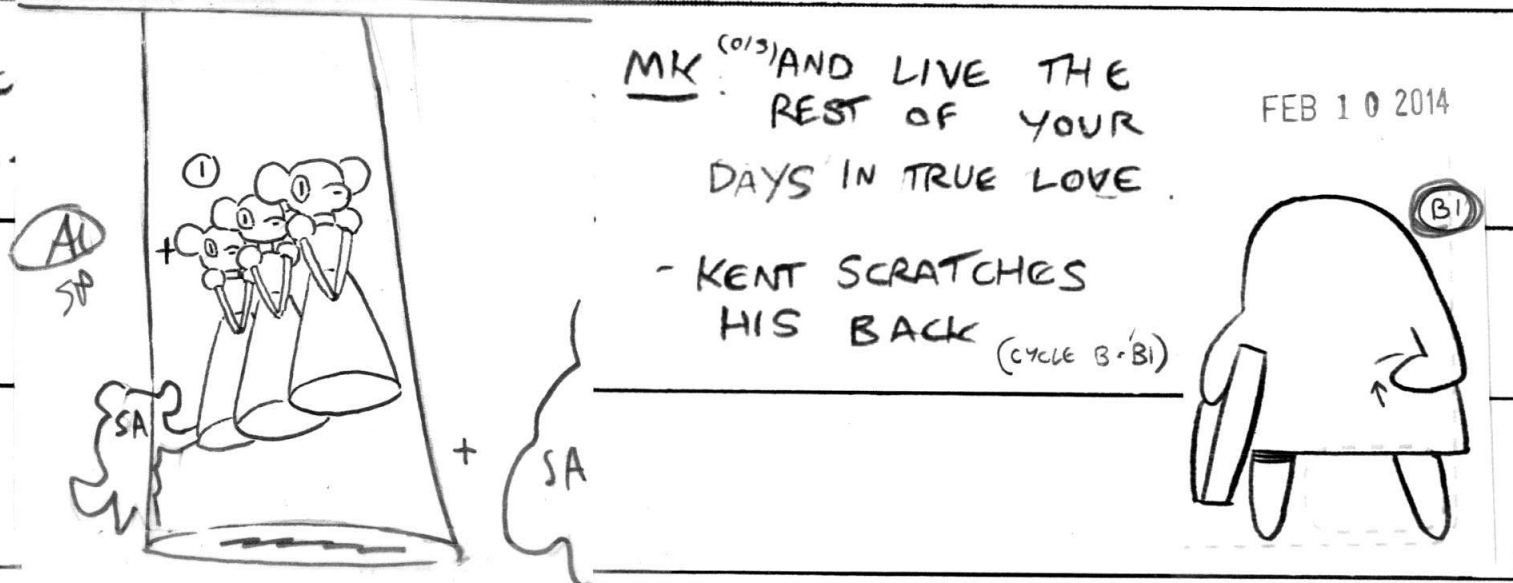 ①
A1
SP
SA
SA
MK (O/S): AND LIVE THE
REST OF YOUR
DAYS IN TRUE LOVE.
- KENT SCRATCHES
HIS BACK (CYCLE B-B1)
FEB 10 2014
B1